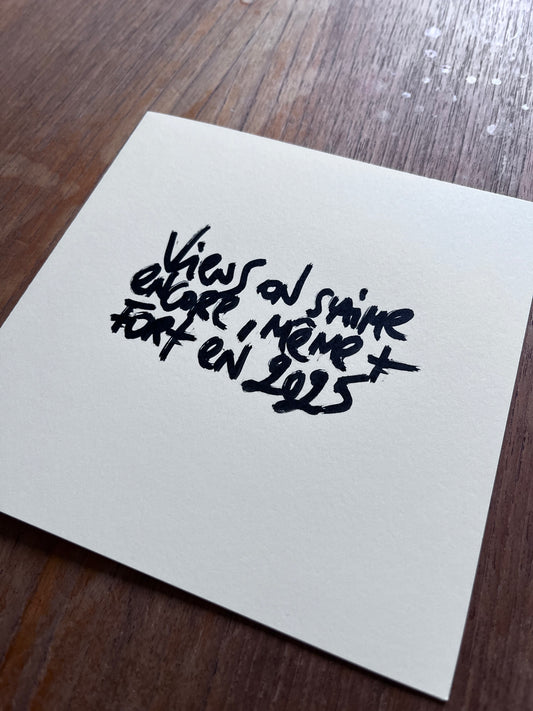 Viens on s'aime
encore, même +
fort en 2025